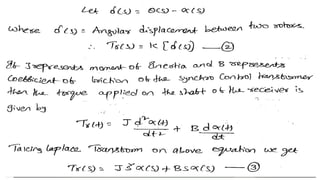 Let δ(s) = θ(s) - α(s)
where δ(s) = Angular displacement between two rotors.
∴ TR(s) = K [δ(s)] — ②
If J represents moment of Inertia and B represents
Coefficient of friction of the Synchro Control transformer
then the torque applied on the shaft of the receiver is
given by
TR(t) = J d²α(t)/dt² + B dα(t)/dt
Taking Laplace Transform on above equation we get
TR(s) = J s² α(s) + B s α(s) — ③